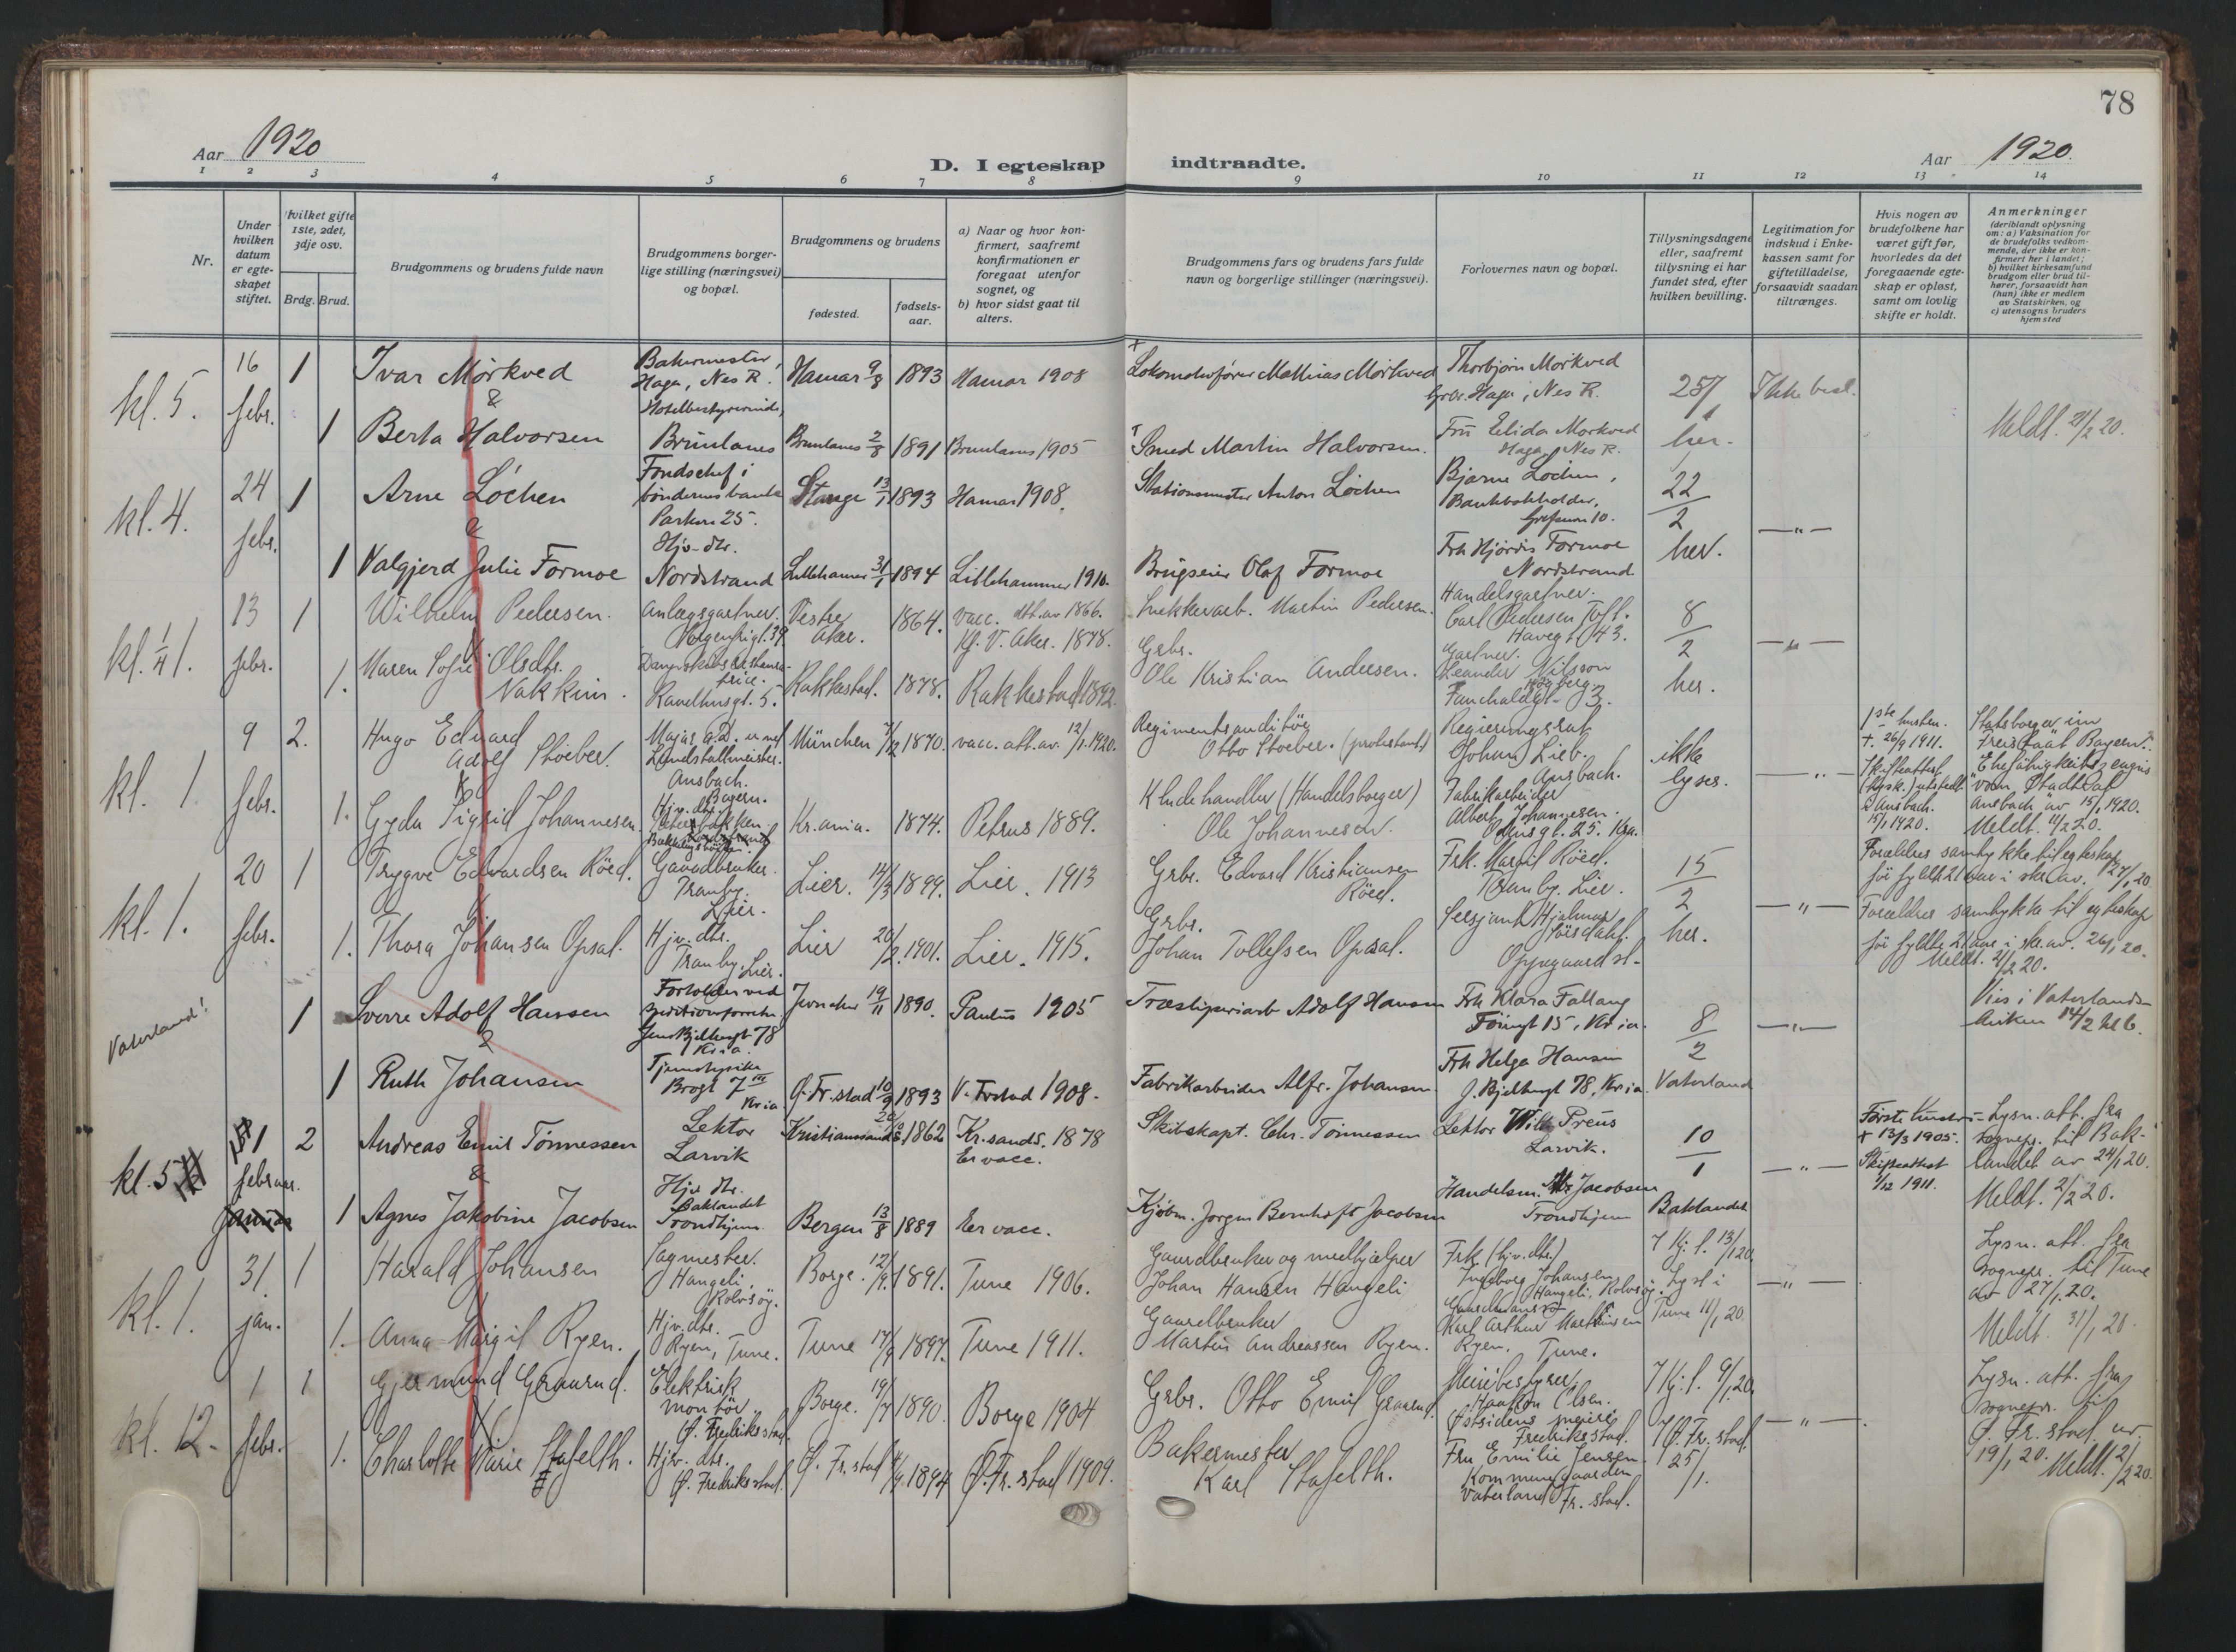 78
Aar 1920
D. I egteskap indtraadte.
Aar 1920.
1 2 3 4 5 6 7 8 9 10 11 12 13 14
Nr.
Under hvilken datum er egteskapet stiftet.
Hvilket gifte 1ste, 2det, 3dje osv.
Brdg. Brud.
Brudgommens og brudens fulde navn
Brudgommens borgerlige stilling (næringsvei) og bopæl.
Brudgommens og brudens
fødested.
fødselsaar.
a) Naar og hvor konfirmert, saafremt konfirmationen er foregaat utenfor sognet, og
b) hvor sidst gaat til alters.
Brudgommens fars og brudens fars fulde navn og borgerlige stillinger (næringsvei).
Forlovernes navn og bopæl.
Tillysningsdagene eller, saafremt tillysning ei har fundet sted, efter hvilken bevilling.
Legitimation for indskud i Enkekassen samt for giftetilladelse, forsaavidt saadan tiltrænges.
Hvis nogen av brudefolkene har været gift før, hvorledes da det foregaaende egteskap er opløst, samt om lovlig skifte er holdt.
Anmerkninger (deriblandt oplysning om: a) Vaksination for de brudefolks vedkommende, der ikke er konfirmert her i landet; b) hvilket kirkesamfund brudgom eller brud tilhører, forsaavidt han (hun) ikke er medlem av Statskirken, og c) utensogns bruders hjemsted
kl. 5. 16 febr. 1 Ivar Mörkved Bakermester, Haga, Nes R. Hamar 9/8 1893 Hamar 1908 + Lokomotivfører Mathias Mörkved Thorbjörn Mörkved Grbr. Haga, Nes R. Ikke besl.
&
1 Berta Halvorsen Hotelbestyrerinde, Brunlanes Brunlanes 2/8 1891 Brunlanes 1905 Smed Martin Halvorsen. Fru Elida Mörkved Haga, Nes R. her. Meldt. 21/2 20.
kl. 4. 24 febr. 1 Arne Löchen Fondschef i böndernes bank Parkvn 25. Stange 13/1 1893 Hamar 1908. Stationsmester Anton Löchen Bjarne Löchen, Bankbokholder, Grefsenvn 10. 22/2 —"—
&
1 Valgjerd Julie Formoe Hjv. dtr. Nordstrand Lillehamer 31/1 1894 Lillehammer 1910. Brugseier Olaf Formoe Frk Hjördis Formoe Nordstrand her.
kl. 1 1/4. 13 febr. 1 Wilhelm Pedersen. Anlægsgartner. Vestre Aker. 1864. vacc. att. av 1866. Kf. V. Aker. 1878. Martin Pedersen. Handelsgartner. Carl Pedersen Toft. Havegt 43. 8/2 —"—
1. Maren Sofie Olsdtr. Nakkim. Raadhusgt. 5. Rakkestad. 1878. Rakkestad 1892. Grbr. Ole Kristian Andersen. Gartner. Leander Nilsson her.
kl. 1. 9 febr. 2. Hugo Eduard Adolf Stoeber. Major a.D. Landstallmeister. Ansbach. Bayern. München 7/12 1870. vacc. att. av. 12/1. 1920. Regimentsauditör Otto Stoeber. (protestant) Regierungsrat Johan Lieb. Ansbach. ikke lyses. —"— 1ste hustru. +. 26/9 1911. Skifteattest (tysk.) utstedt i Ansbach. 15/1 1920. Statsborger im Freistaat Bayern. Ehefähigkeitszeugnis von Stadtrat Ansbach av 15/1 1920. Meldt. 11/2 20.
&
1. Gyda Sigrid Johannesen Hjv. dtr. Kr.ania. 1874. Petrus 1889. Klædehandler (Handelsborger) Ole Johannesen. Fabrikarbeider Albert Johannesen. Odinsgt. 25. Kra.
kl. 1. 20 febr. 1 Trygve Edvardsen Röed. Gaardbruker. Tranby. Lier. Lier. 14/3 1899. Lier. 1913 Grbr. Edvard Kristiansen Röed. Frk. Margit Röed. Tranby. Lier. 15/2 —"— Forældres samtykke til egteskap för fyldt 21 aar i skr. av. 27/1 20.
1. Thora Johansen Opsal. Hjv. dtr. Tranby. Lier. Lier 20/2. 1901. Lier. 1915. Grbr. Johan Tollefsen Opsal. Sersjant Hjalmar Oppegaard st. her. Forældres samtykke til egteskap för fyldte 21 aar i skr. av. 26/1 20. Meldt. 21/2 20.
Vaterland! 1 Sverre Adolf Hansen Forvalter ved Jens Bjelkesgt 78 Kria. Jevnaker 19/11 1890. Paulus 1905 Træsliperiarb Adolf Hansen Frk Klara Fallang Töingt 15, Kria. 8/2 —"— Vies i Vaterlands- kirken 14/2 kl 6.
&
1 Ruth Johansen Tjenestepike Brogt 7 III Kria Ø. Fr.stad 10/9 1893 V. Frstad 1908. Fabrikarbeider Alfr. Johansen Frk Helga Hansen J. Bjelkesgt 78, Kria. Vaterland
kl. 5 1 februar. 2 Andreas Emil Tönnessen Lektor Larvik Kristianssand S. 1862 Kr.sand S. 1878 Er vacc. Skibskapt. Chr. Tönnessen Lektor Wilh Preus Larvik. 10/1 —"— Förste hustru + 13/3 1905. Skifteattest 1/12 1911. Lysn. att. fra sognepr. til Bak- landet av 24/1 20. Meldt. 2/2 20.
&
1 Agnes Jakobine Jacobsen Hjv dtr. Baklandet Trondhjem. Bergen 13/8 1889 Er vacc. Kjöbm. Jörgen Bernhoft Jacobsen Handelsm. Jacobsen Trondhjem Baklandet
kl. 1. 31. jan. 1 Harald Johansen Sagmester. Hangeli. Rolvsöy. Borge. 12/9. 1891. Tune 1906. Gaardbruker og medhjælper Johan Hansen Hangeli Frk. (hjv. dtr.) Ingeborg Johansen Hangeli. Rolvsöy. 7 Kj. l. 13/1 20. Lyst i Tune 11/1 20 —"— Lysn. att. fra sognepr. til Tune av 27/1. 20. Meldt. 31/1 20.
1. Anna Margit Ryen. Hjv. dtr. Ryen, Tune. Tune 17/9 1897. Tune 1911. Gaardbruker Martin Andreassen Ryen. Karl Arthur Martinsen Ryen. Tune.
kl. 12. 1 febr. 1 Gjermund Graarud. Elektrisk montör. Ø. Fredriksstad. Borge. 19/7 1890. Borge 1904 Grbr. Otto Emil Graarud. Meieribestyrer. Haakon Olsen. Østsidens meieri. Fredriksstad. 7 Kj. l. 9/1 20. —"— Lysn. att. fra sognepr. til Ø. Fr. stad. av. 19/1 20. Meldt. 2/2 20.
&
1. Charlotte Marie Stafelth. Hjv. dtr. Ø. Fredriksstad. Ø. Fr. stad 1894 Ø. Fr. stad 1909. Bakermester Karl Stafelth. Fru Emilie Jensen. Kommunegaarden Vaterland Fr. stad. Ø. Fr. stad. 25/1.